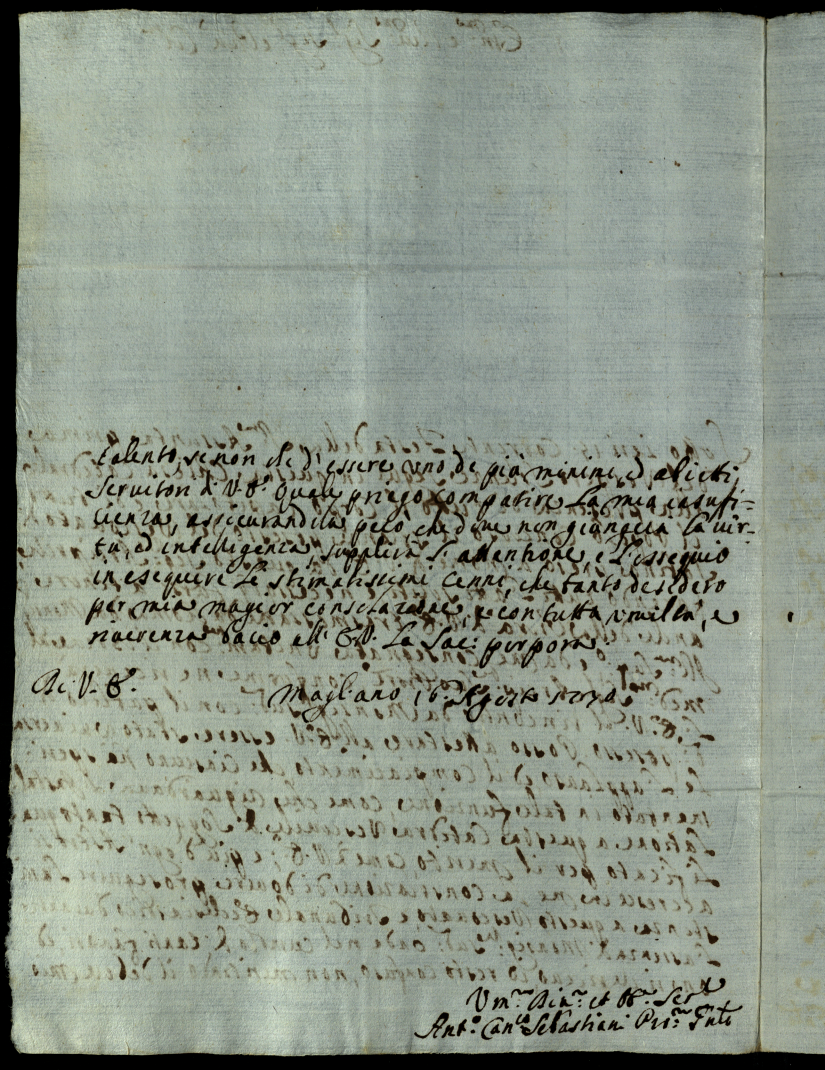 talento, se non che d'essere uno de piu minimi, ed abietti
Servitori di V. E. quale priego compatire la mia insufi-
cienza, assicurandola però, che dove non giongerà la vir-
tù, ed intelligenza, supplirà l'attentione, e l'ossequio
in eseguire le stimatissimi cenni, che tanto desidero
per mia magior consolazione, e con tutta umiltà, e
riverenza bacio all' E.V. la Sac: porpora.
Di V. E.
Magliano 16 Agosto
Um.mo Div.mo et Obb.mo Ser.re
Ant.o Can.co Sebastiani